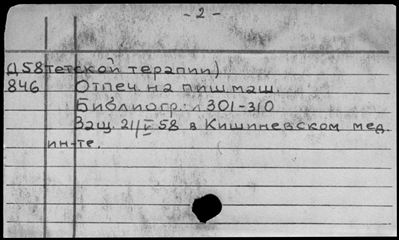 - 2 -
Д58тетской терапии)
846 Отпеч. на пиш.маш.
Библиогр.: л 301-310
Защ. 21/V 58 в Кишиневском мед.
ин-те.